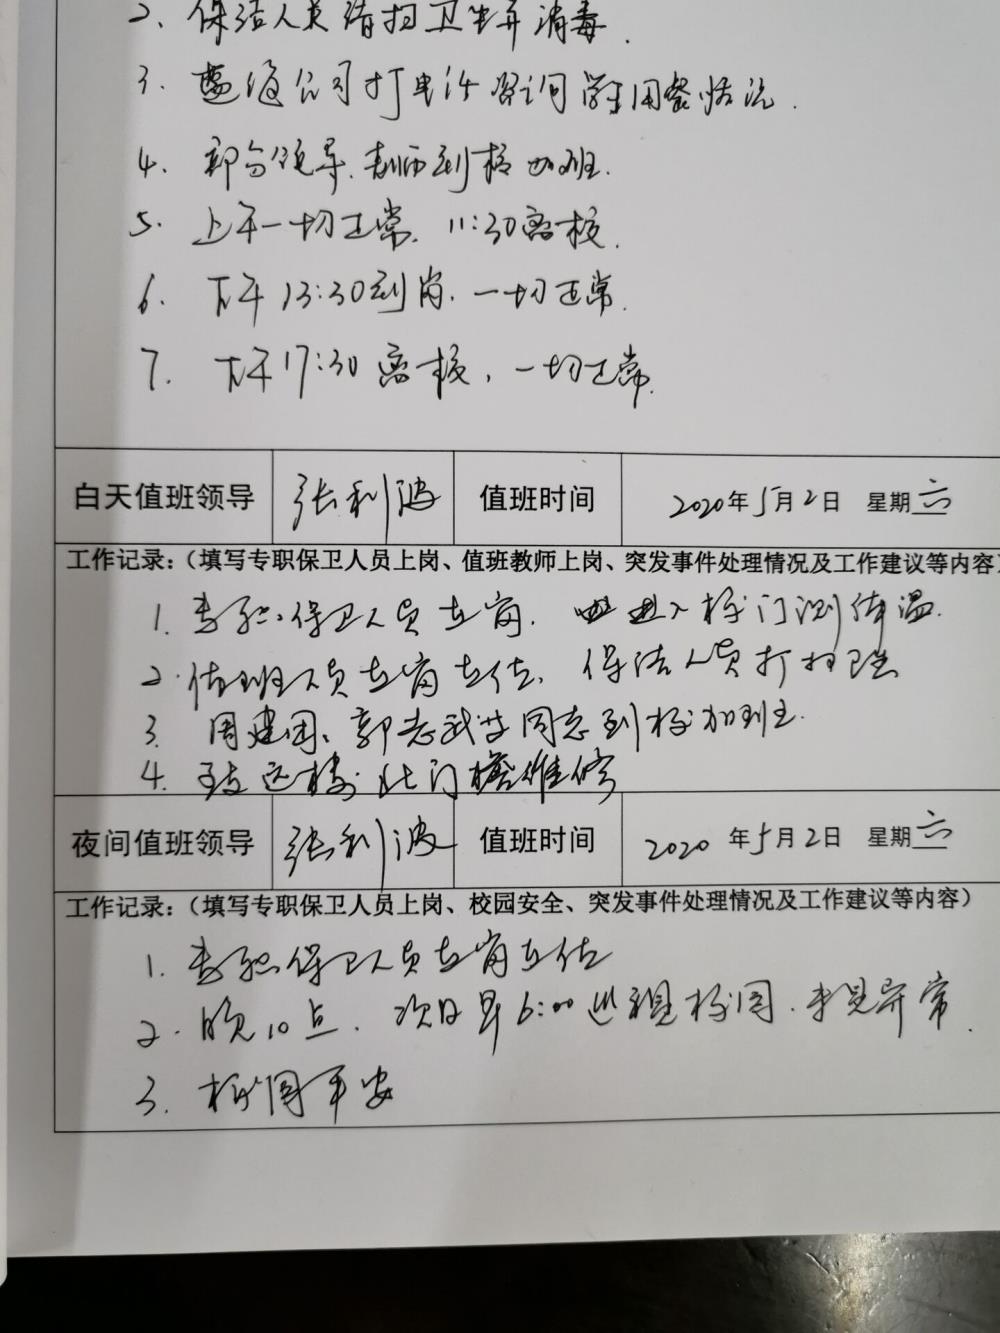 2、保洁人员清扫卫生并消毒.
3. 公司打电话咨询学生用餐情况.
4. 部分领导、教师到校加班.
5. 上午一切正常. 11:30离校.
6. 下午13:30到岗. 一切正常.
7. 下午17:30离校, 一切正常.
白天值班领导 张利波 值班时间 2020年5月2日 星期六
工作记录:(填写专职保卫人员上岗、值班教师上岗、突发事件处理情况及工作建议等内容)
1. 专职保卫人员在岗. 进入校门测体温.
2. 值班人员在岗在位, 保洁人员打扫卫生
3. 周建国、郭志武等同志到校加班.
4. 致远楼北门楼维修
夜间值班领导 张利波 值班时间 2020年5月2日 星期六
工作记录:(填写专职保卫人员上岗、校园安全、突发事件处理情况及工作建议等内容)
1. 专职保卫人员在岗在位
2. 晚10点. 次日早6:00巡视校园. 未见异常.
3. 校园平安